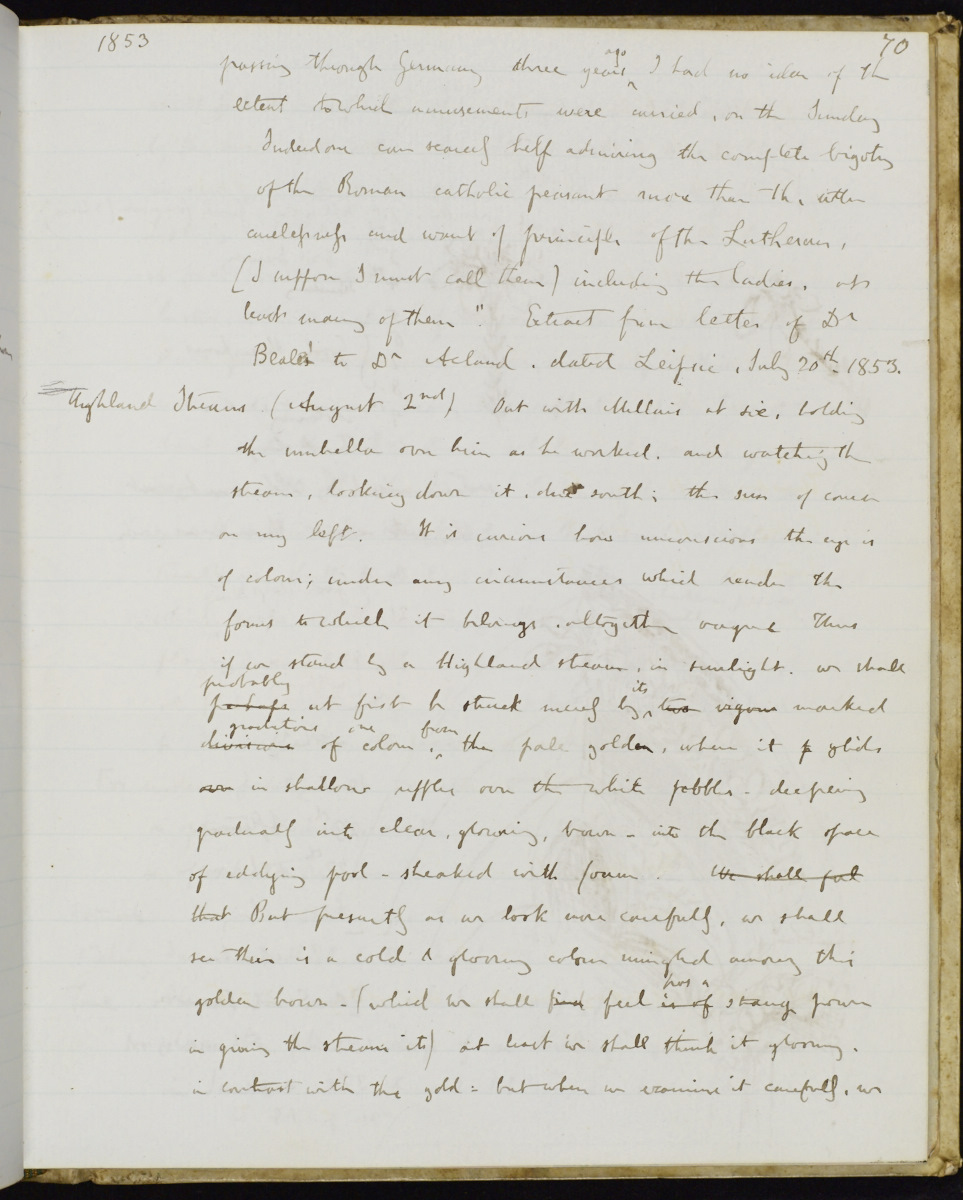 1853
70
passing through Germany three years ago I had no idea of the
extent to which amusements were carried, on the Sunday
Indeed one can scarcely help admiring the complete bigotry
of the Roman catholic peasant more than the utter
carelessness and want of principle of the Lutherans,
(I suppose I must call them) including the ladies, at
least many of them". Extract from letter of Dr
Beale's to Dr Acland. dated Leipsic, July 20th 1853.
Highland Streams. (August 2nd) Out with Millais at six, holding
the umbrella over him as he worked. and watching the
stream, looking down it, due south; the sun of course
on my left. It is curious how unconscious the eye is
of colour; under any circumstances which render the
forms to which it belongs, altogether vague Thus
if we stand by a Highland stream, in sunlight. we shall
probably
perhaps at first be struck merely by its two vigorous marked
gradations one from
divisions of colour, the pale golden, where it p glides
over in shallow ripples over the white pebbles - deepening
gradually into clear, glowing, brown - into the black space
of eddying pool - streaked with foam. We shall feel
that But presently as we look more carefully, we shall
see there is a cold & gloomy colour mingled among this
has a
golden brown - (which we shall find feel is of strange power
in giving the stream its) at least we shall think it gloomy.
in contrast with the gold: but when we examine it carefully, we